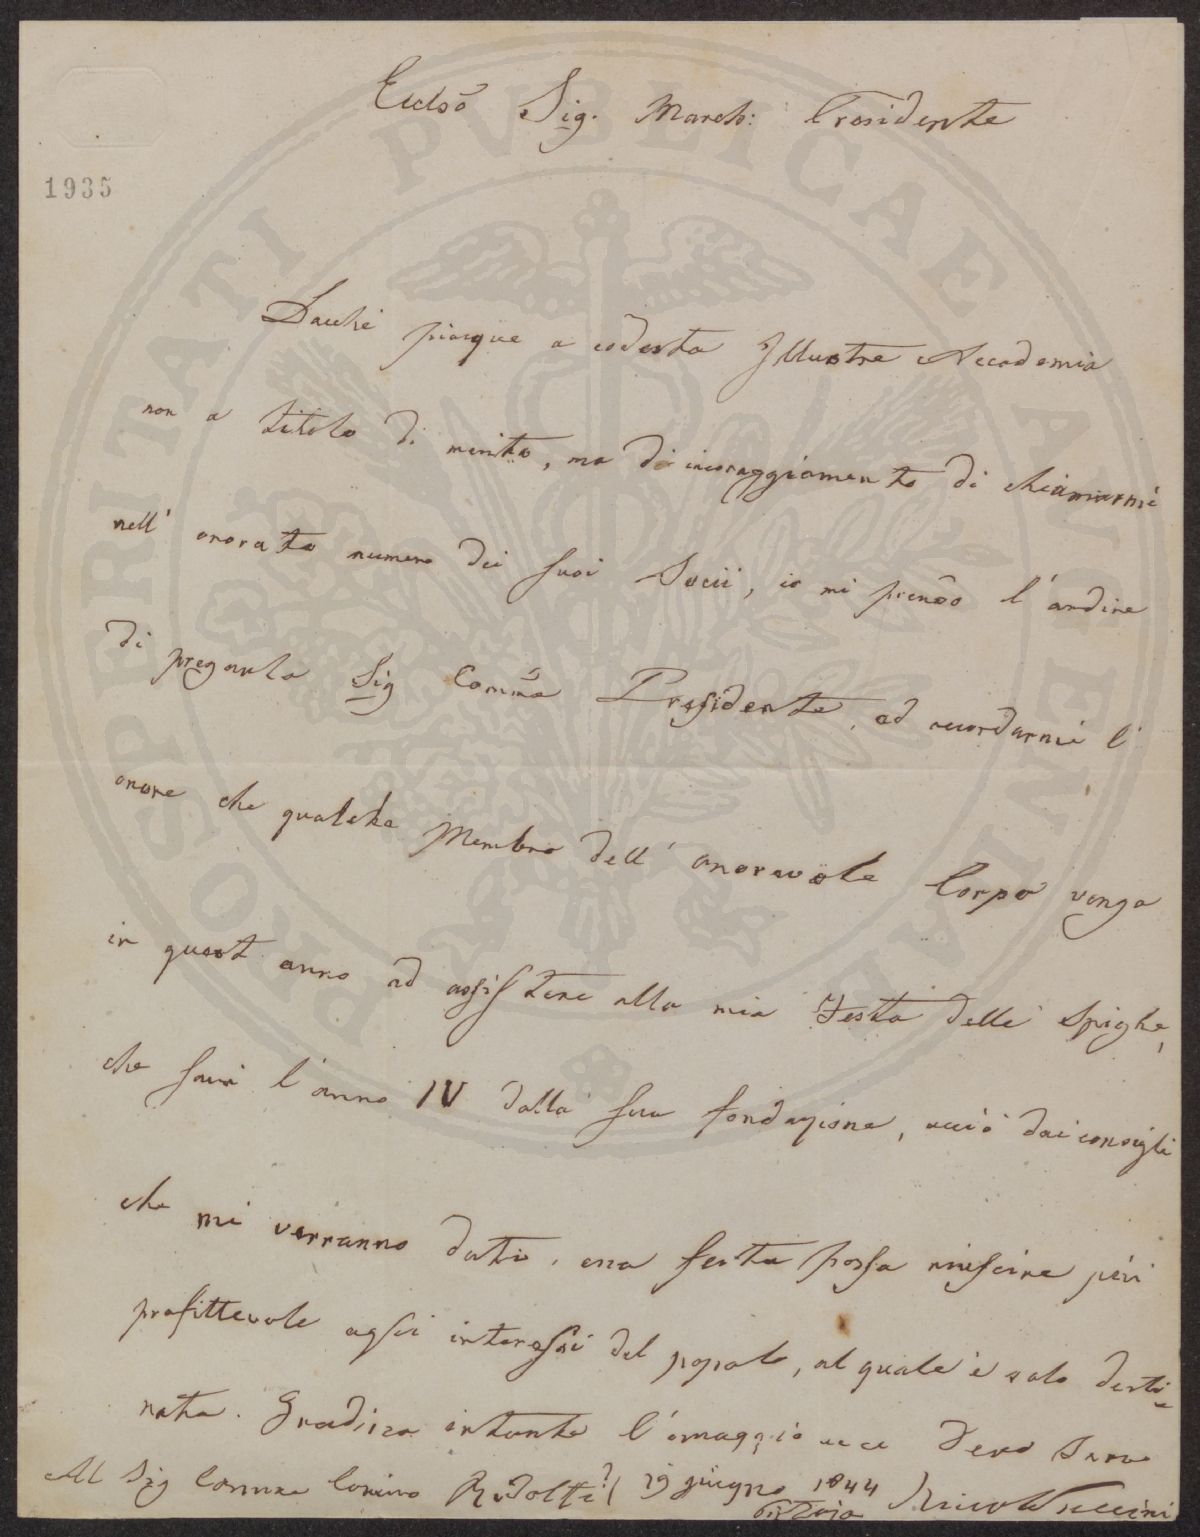 Ecclsõ Sig. March: Presidente
1935
Dacchè piacque a codesta Illustre Accademia
non a titolo di merito, ma di incoraggiamento di chiamarmi
nell' onorato numero dei suoi Socii, io mi prendo l'ardire
di pregarla Sig Presidente, ad accordarmi l'
onore che qualche Membro dell' onorevole Corpo venga
in quest anno ad assistere alla mia Festa delle Spighe,
che sarà l'anno IV dalla sua fondazione, acciò dai consigli
che mi verranno dati, essa festa possa riuscire più
profittevole agli interessi del popolo, al quale è solo desti=
nata. Gradisca intanto l'omaggio Devo Servo
Al Sig Cosimo Ridolfi 19 giugno 1844 Niccolò Puccini
Pistoia
PROSPERITATI PVBLICAE AVGENDAE